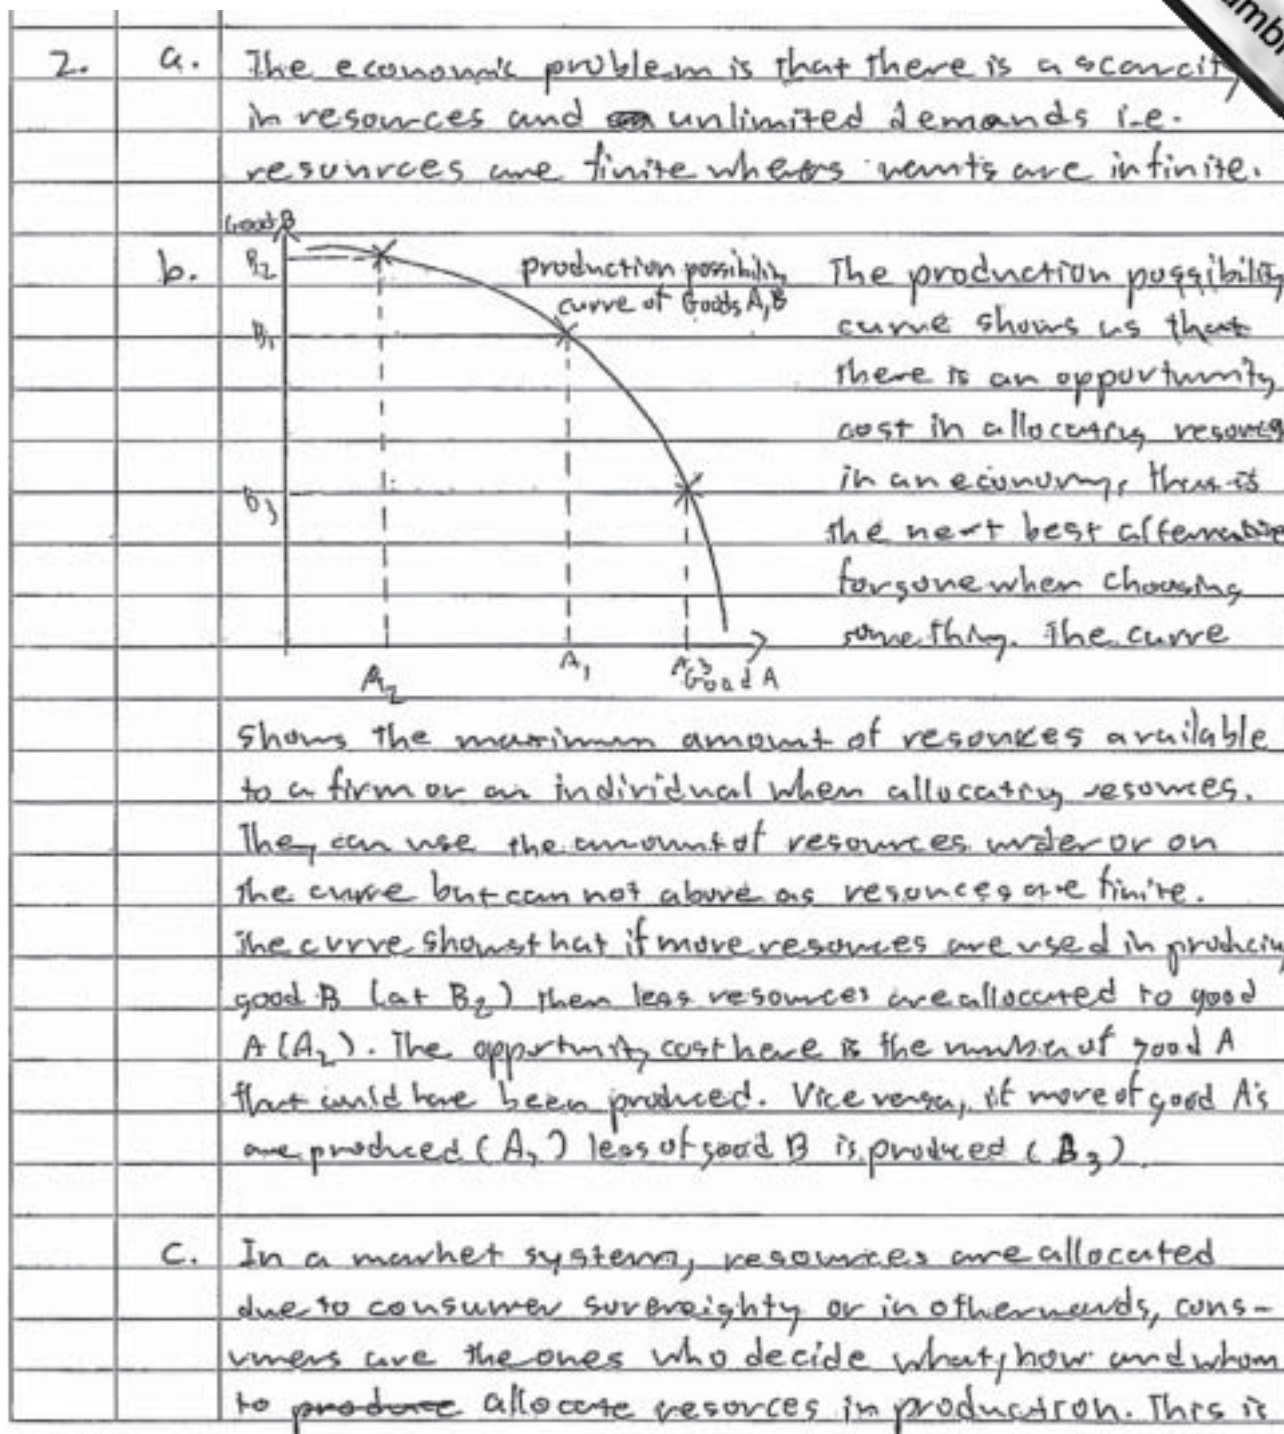 ambr
2. a. The economic problem is that there is a scarcity
in resources and unlimited demands i.e.
resources are finite wheras wants are infinite.
Good B
b. B2 production possibility The production possibility
curve of Goods A, B
B1 curve shows us that
there is an opportunity
cost in allocating resources
B3 in an economy, that is
the next best alternative
forgone when choosing
something. The curve
A2 A1 A3 Good A
shows the maximum amount of resources available
to a firm or an individual when allocating resources.
They can use the amount of resources under or on
the curve but can not above as resources are finite.
The curve shows that if more resources are used in producing
good B (at B2) then less resources are allocated to good
A (A2). The opportunity cost here is the number of good A
that could have been produced. Vice versa, if more of good A's
are produced (A3) less of good B is produced (B3)
c. In a market system, resources are allocated
due to consumer sovereighty or in other words, cons-
umers are the ones who decide what, how and whom
to produce allocate resorces in production. This is